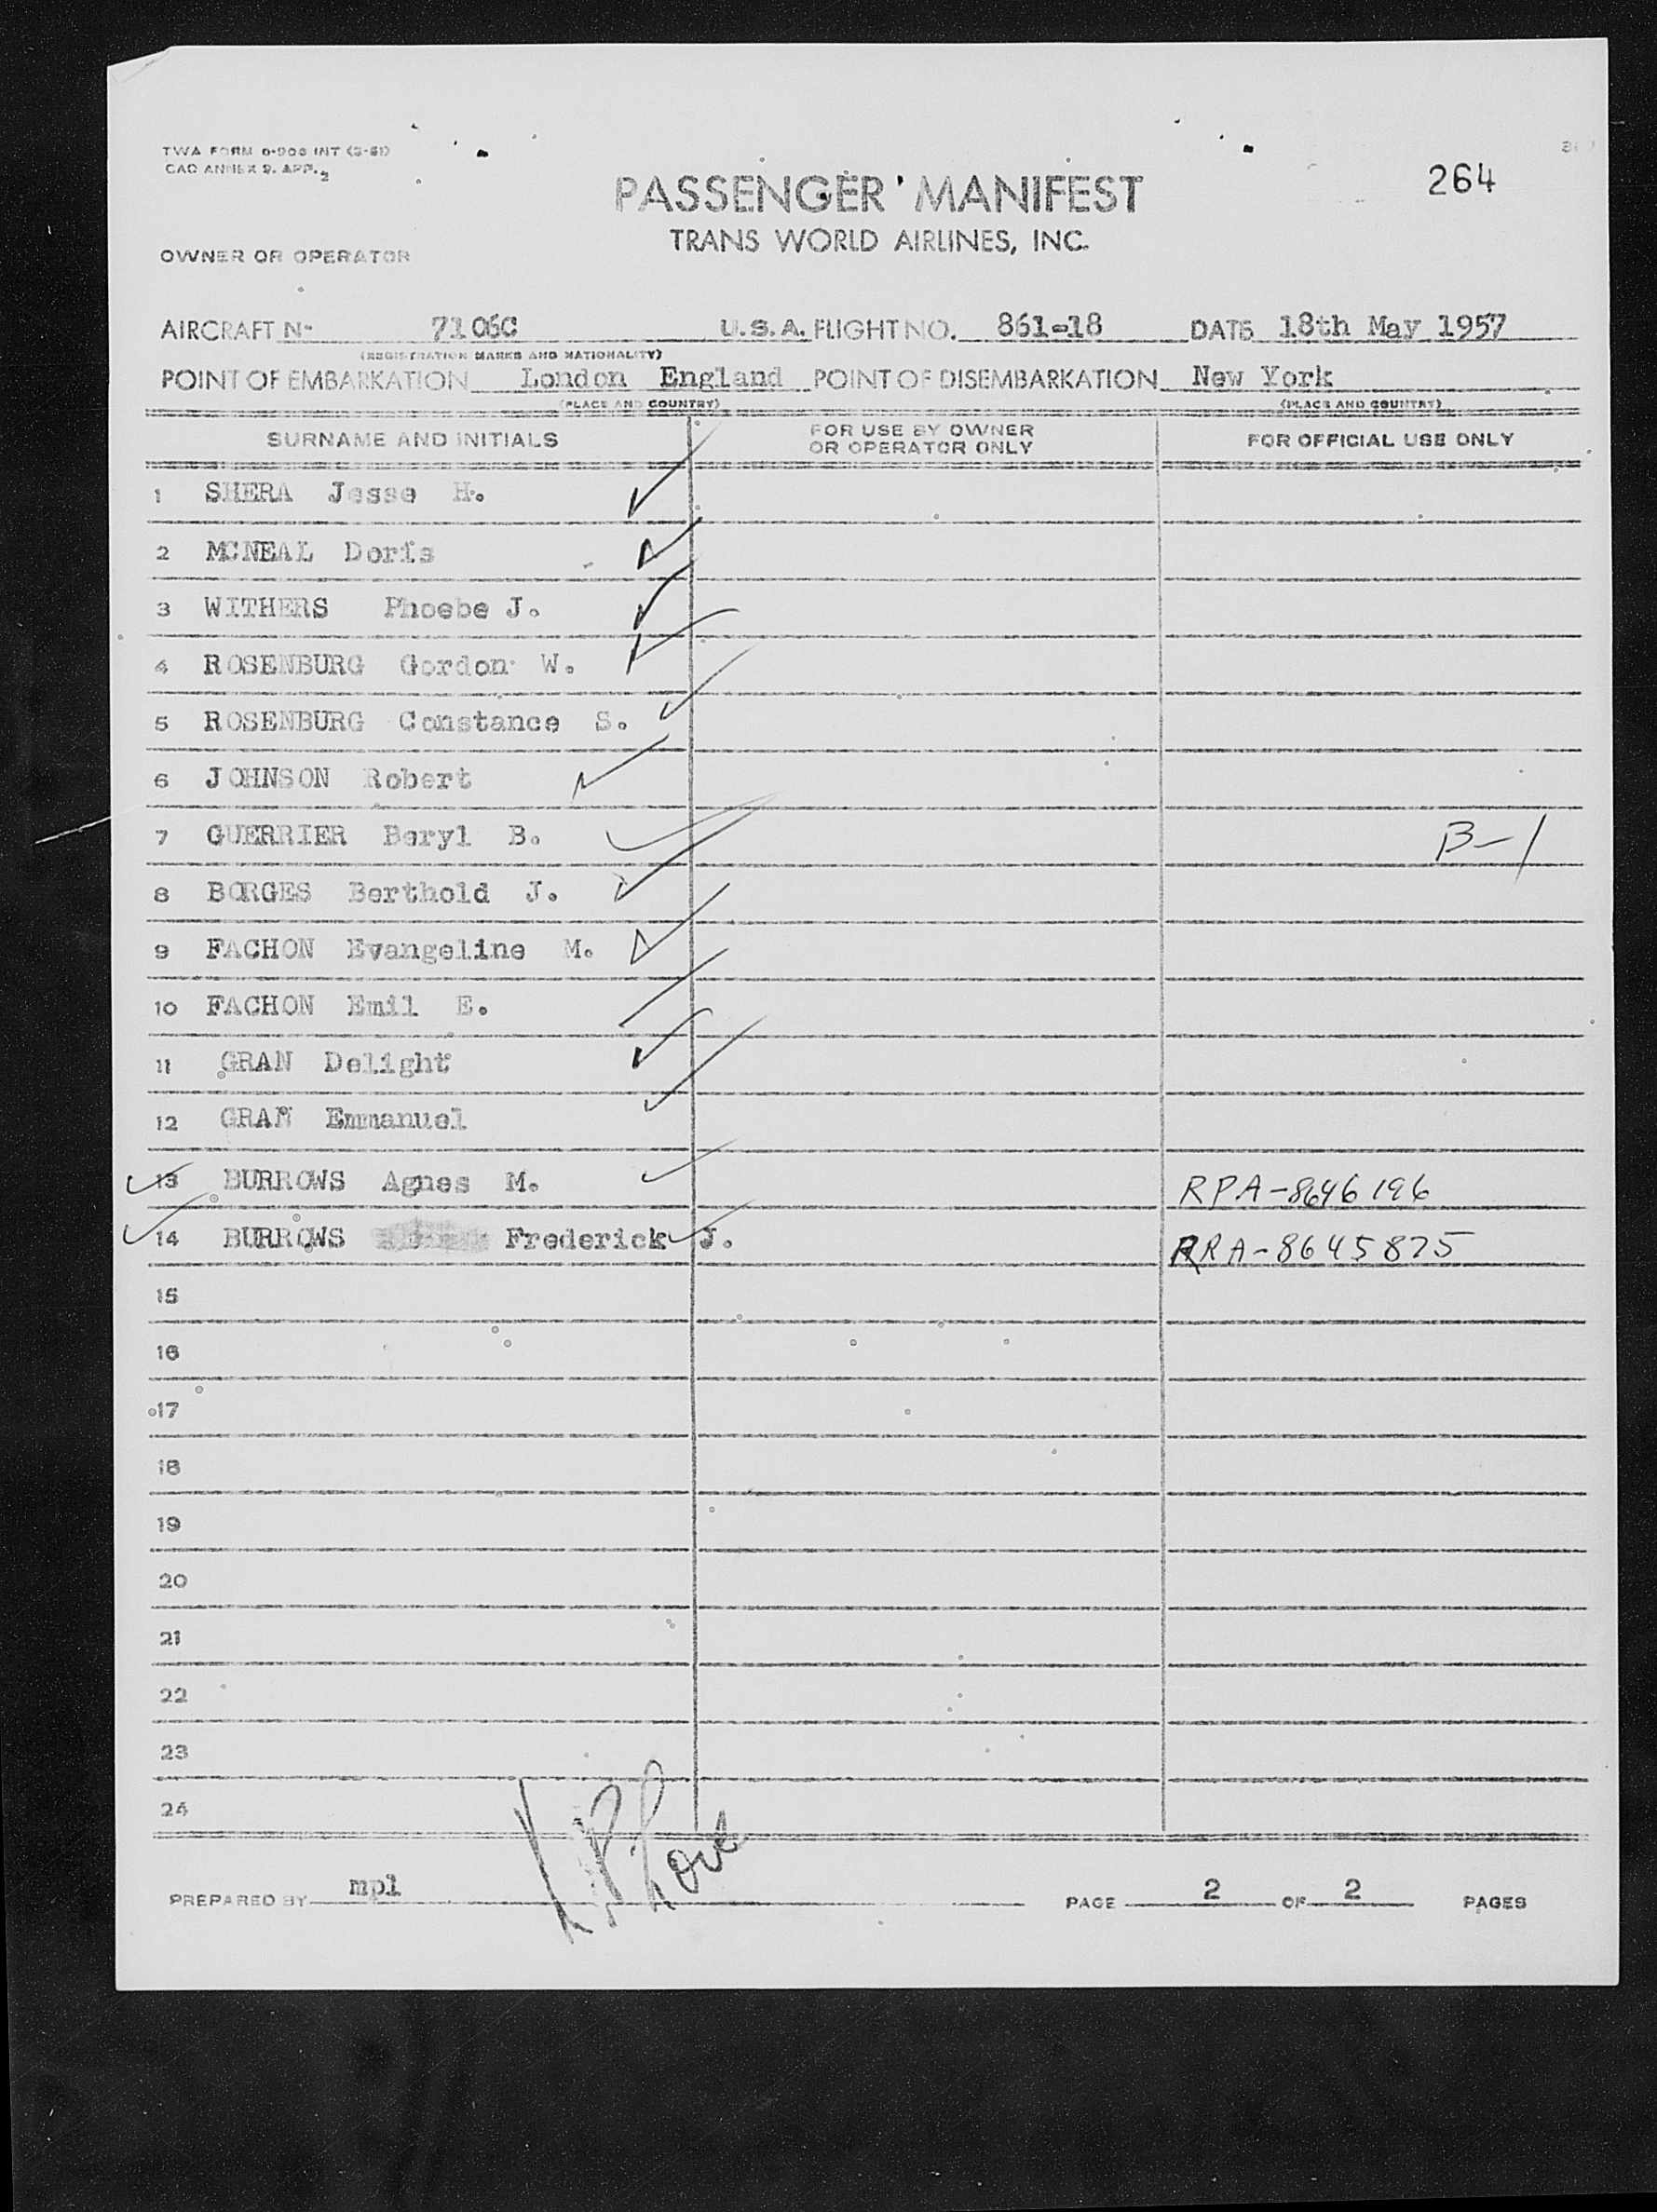 TWA FORM 0-908 INT (3-51)
CAO ANNEX 9. APP. 2
264
PASSENGER MANIFEST
TRANS WORLD AIRLINES, INC.
OWNER OR OPERATOR
AIRCRAFT N- 7106C U.S.A. FLIGHT NO. 861-18 DATE 18th May 1957
(REGISTRATION MARKS AND NATIONALITY)
POINT OF EMBARKATION London England POINT OF DISEMBARKATION New York
(PLACE AND COUNTRY) (PLACE AND COUNTRY)
SURNAME AND INITIALS FOR USE BY OWNER OR OPERATOR ONLY FOR OFFICIAL USE ONLY
1 SHERA Jesse H.
2 MCNEAL Doris
3 WITHERS Phoebe J.
4 ROSENBURG Gordon W.
5 ROSENBURG Constance S.
6 JOHNSON Robert
7 GUERRIER Beryl B. B-1
8 BORGES Berthold J.
9 FACHON Evangeline M.
10 FACHON Emil E.
11 GRAN Delight
12 GRAN Emmanuel
13 BURROWS Agnes M. RPA-8646196
14 BURROWS Frederick J. RRA-8645875
15
16
17
18
19
20
21
22
23
24
PREPARED BY mpl PAGE 2 OF 2 PAGES